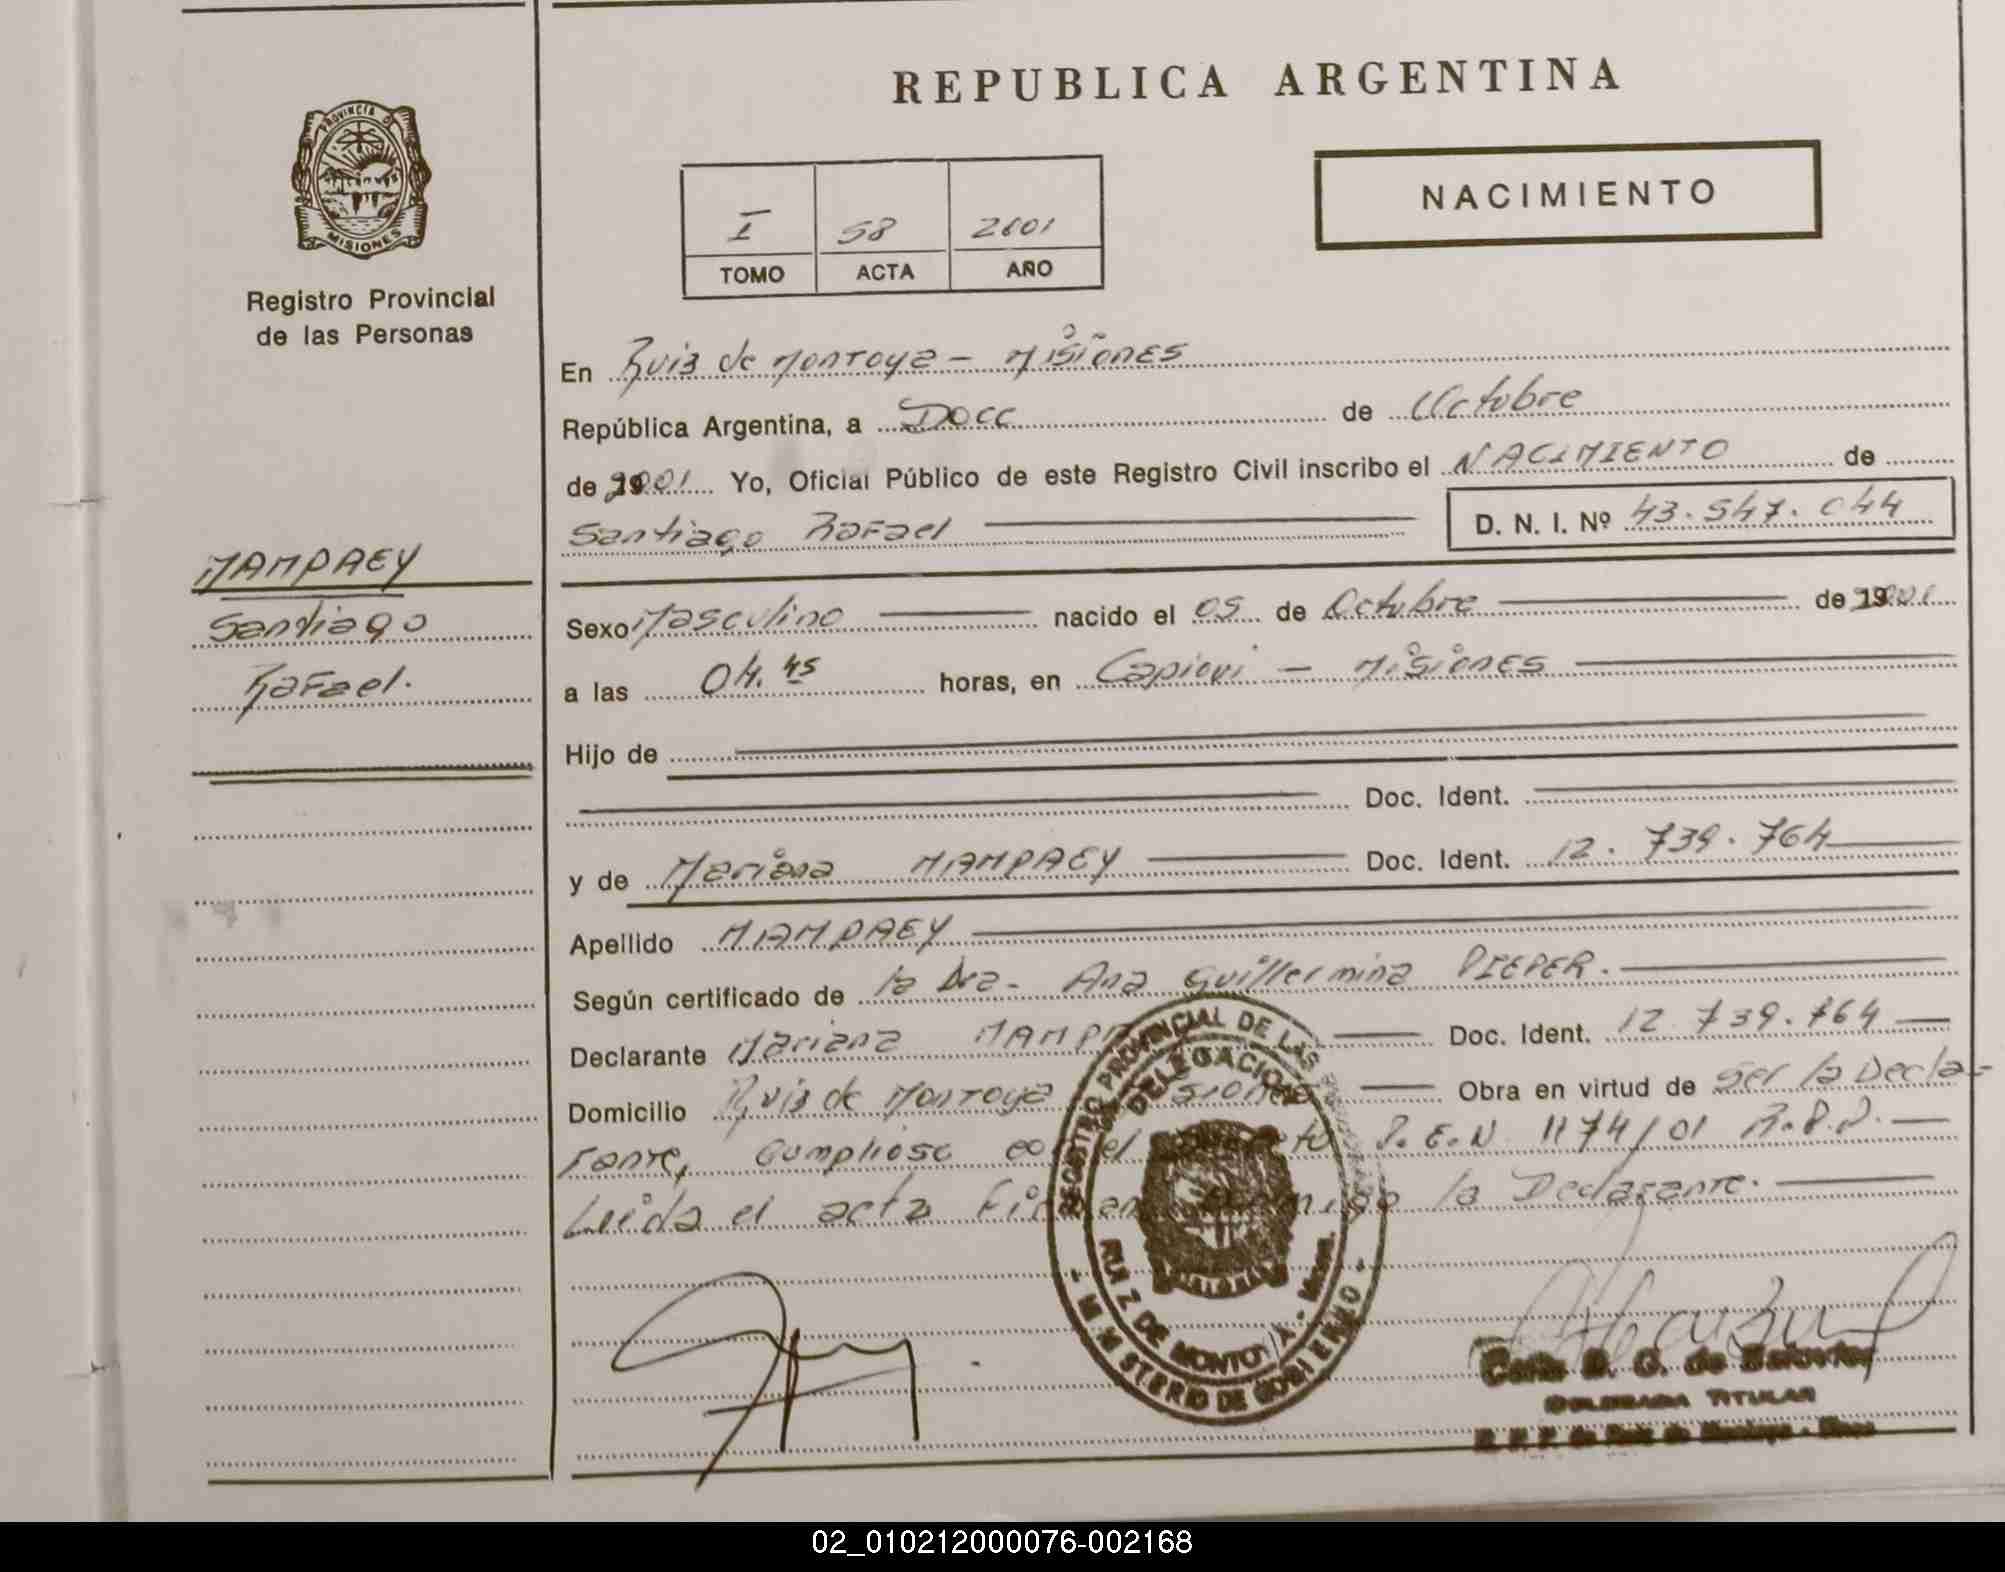 REPUBLICA ARGENTINA
PROVINCIA D
MISIONES
Registro Provincial
de las Personas
I 58 2001
TOMO ACTA AÑO
NACIMIENTO
En Ruiz de Montoya - Misiones
República Argentina, a Doce de Octubre
de 2001 Yo, Oficial Público de este Registro Civil inscribo el NACIMIENTO de
Santiago Rafael D. N. I. Nº 43.547.044
MAMPAEY
Santiago
Rafael.
Sexo Masculino nacido el 05 de Octubre de 2001
a las 04.45 horas, en Capiovi - Misiones
Hijo de
Doc. Ident.
y de Mariana MAMPAEY Doc. Ident. 12.739.764
Apellido MAMPAEY
Según certificado de la Dra. Ana Guillermina PIEPER.
Declarante Mariana MAMP Doc. Ident. 12.739.764
Domicilio Ruiz de Montoya Obra en virtud de Ser la Decla-
rante, Cumpliose el P.E.N 1174/01 R.P.P.
Leida el acta la Declarante.
REGISTRO PROVINCIAL DE LAS
DELEGACION
RUIZ DE MONTOYA - Mnes.
- MINISTERIO DE GOBIERNO -
DELEGADA TITULAR
R. P. P. de Ruiz de Montoya - Mnes
02_010212000076-002168